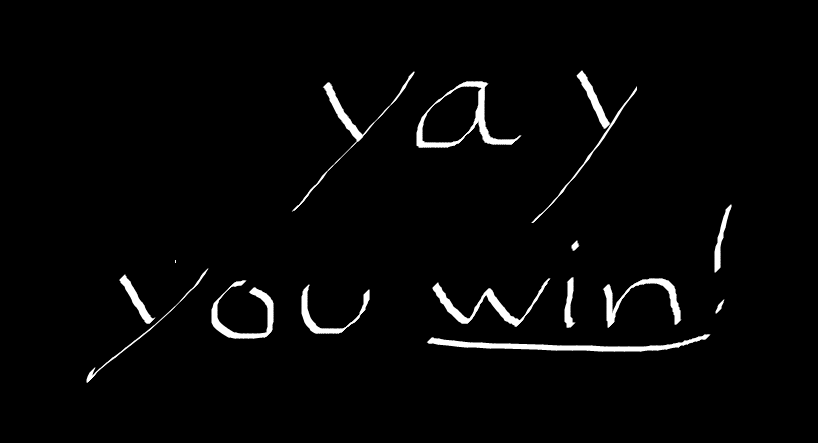 yay
you win!